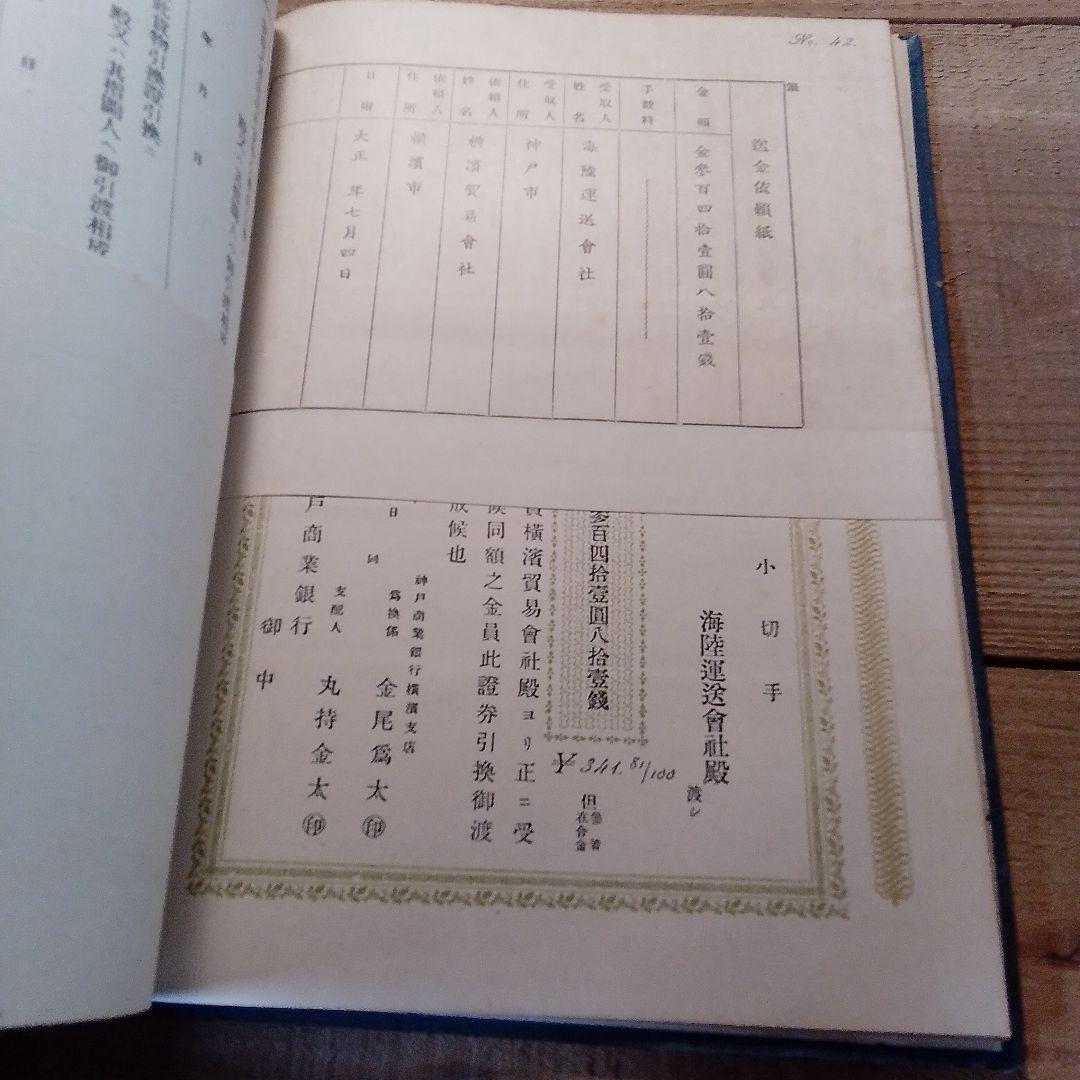 No. 42.
送金依頼紙
金額
金參百四拾壹圓八拾壹錢
手數料
受取人姓名
海陸運送會社
受取人住所
神戸市
依頼人姓名
横濱貿易會社
依頼人住所
横濱市
日附
大正 年七月四日
小切手
海陸運送會社殿
渡シ
參百四拾壹圓八拾壹錢
¥341.81/100
但
横濱貿易會社殿ヨリ正ニ受
候同額之金員此證券引換御渡
成候也
神戸商業銀行横濱支店
爲換係 金尾爲太 印
日 同
支配人 丸持金太 印
戸商業銀行
御中
年 月 日
此貨物引換證引換ニ
殿又ハ其指圖人ヘ御引渡相成